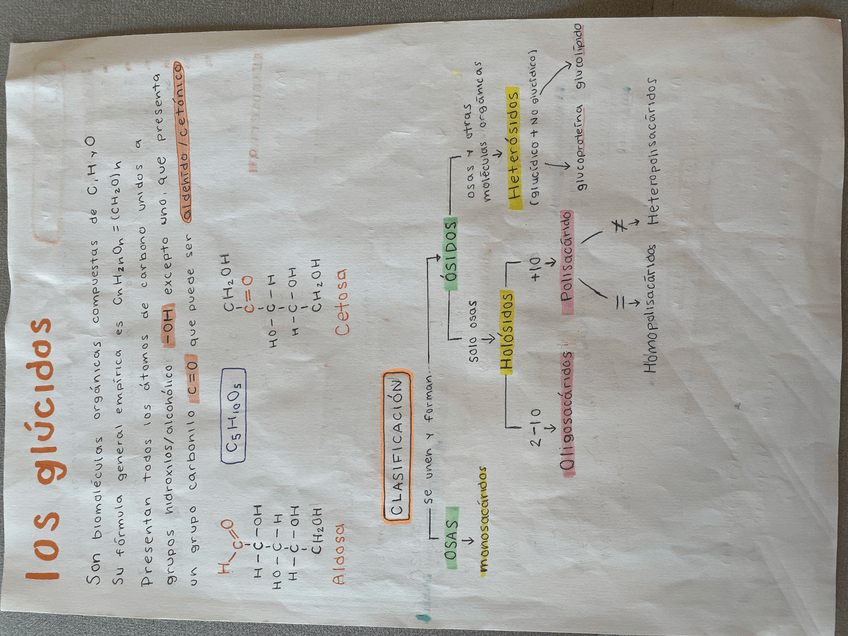 los glúcidos
Son biomoléculas orgánicas compuestas de C, H y O
Su fórmula general empírica es CnH2nOn = (CH2O)n
Presentan todos los átomos de carbono unidos a
grupos hidroxilos/alcohólico -OH excepto uno, que presenta
un grupo carbonilo C=O que puede ser aldehído/cetónico
H-C=O
H-C-OH
HO-C-H
H-C-OH
CH2OH
Aldosa
C5H10O5
CH2OH
C=O
HO-C-H
H-C-OH
CH2OH
Cetosa
CLASIFICACIÓN
se unen y forman
OSAS
monosacáridos
ÓSIDOS
solo osas
Holósidos
2-10
Oligosacáridos
+10
Polisacárido
=
Homopolisacáridos
≠
Heteropolisacáridos
osas y otras
moléculas orgánicas
Heterósidos
(glucídico + No glucídico)
glucoproteína
glucolípido